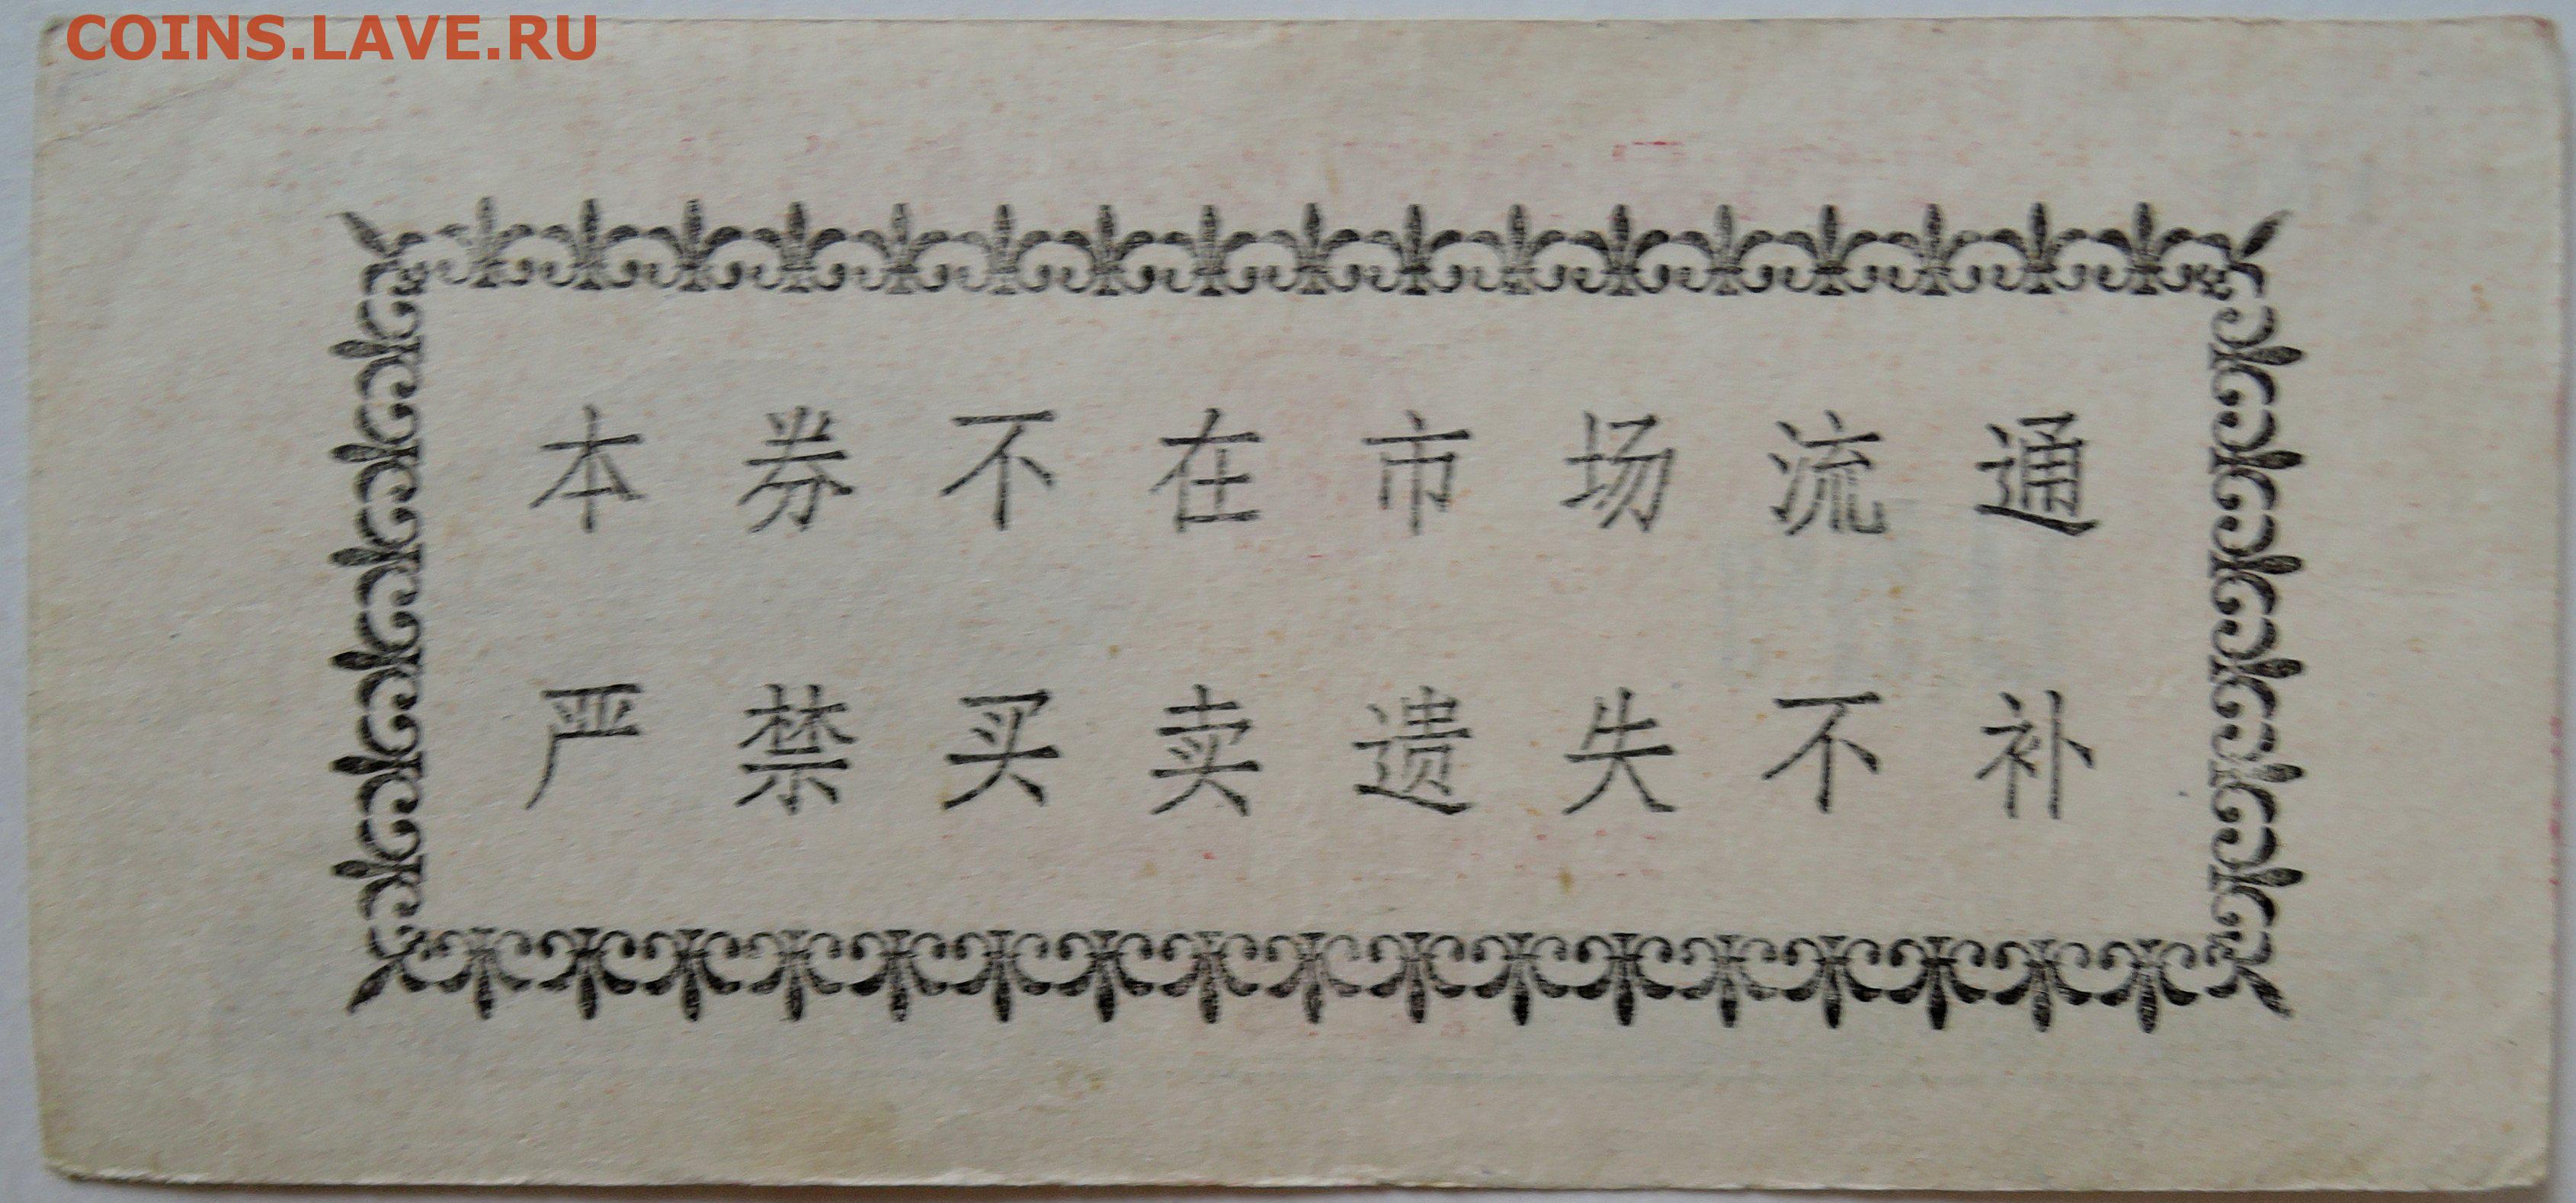 COINS.LAVE.RU
本券不在市场流通
严禁买卖遗失不补